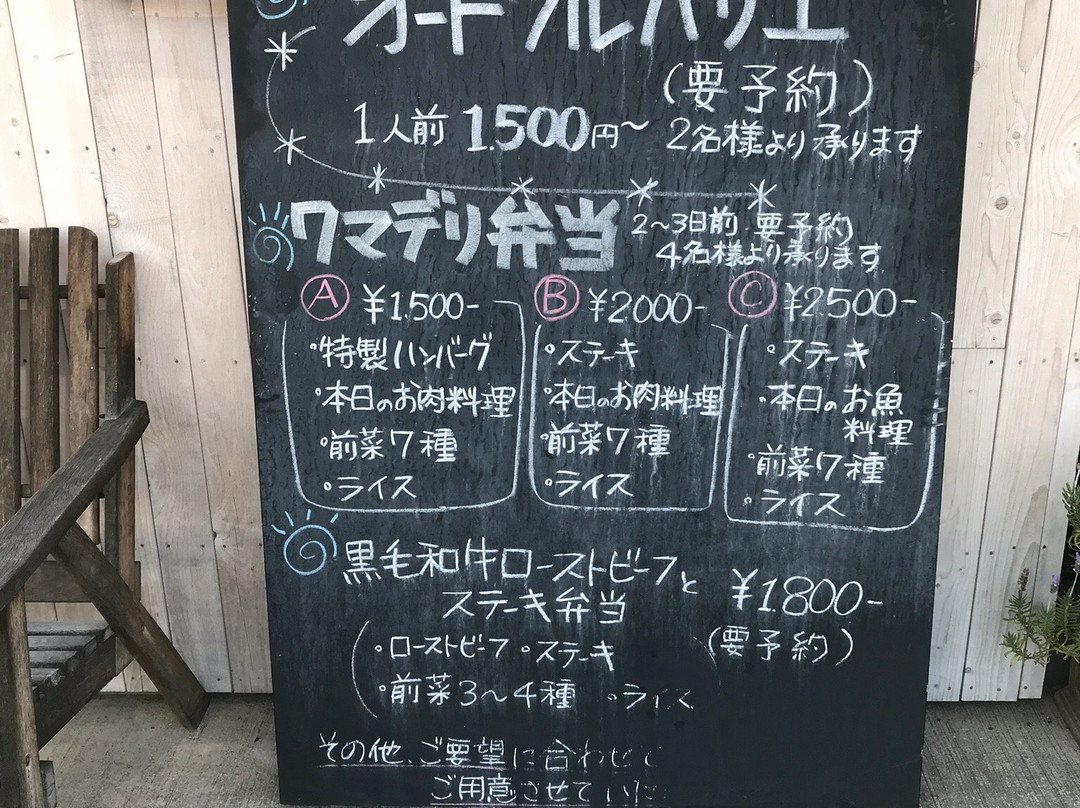 オードブルバリエ
(要予約)
1人前 1.500円〜 2名様より承ります
ワマデリ弁当
2〜3日前.要予約
4名様より承ります
Ⓐ ¥1.500-
・特製ハンバーグ
・本日のお肉料理
・前菜7種
・ライス
Ⓑ ¥2000-
・ステーキ
・本日のお肉料理
・前菜7種
・ライス
Ⓒ ¥2500-
・ステーキ
・本日のお魚
料理
・前菜7種
・ライス
黒毛和牛ローストビーフと
ステーキ弁当
¥1800-
(要予約)
・ローストビーフ ・ステーキ
・前菜3〜4種 ・ライス
その他、ご要望に合わせて
ご用意させていただ